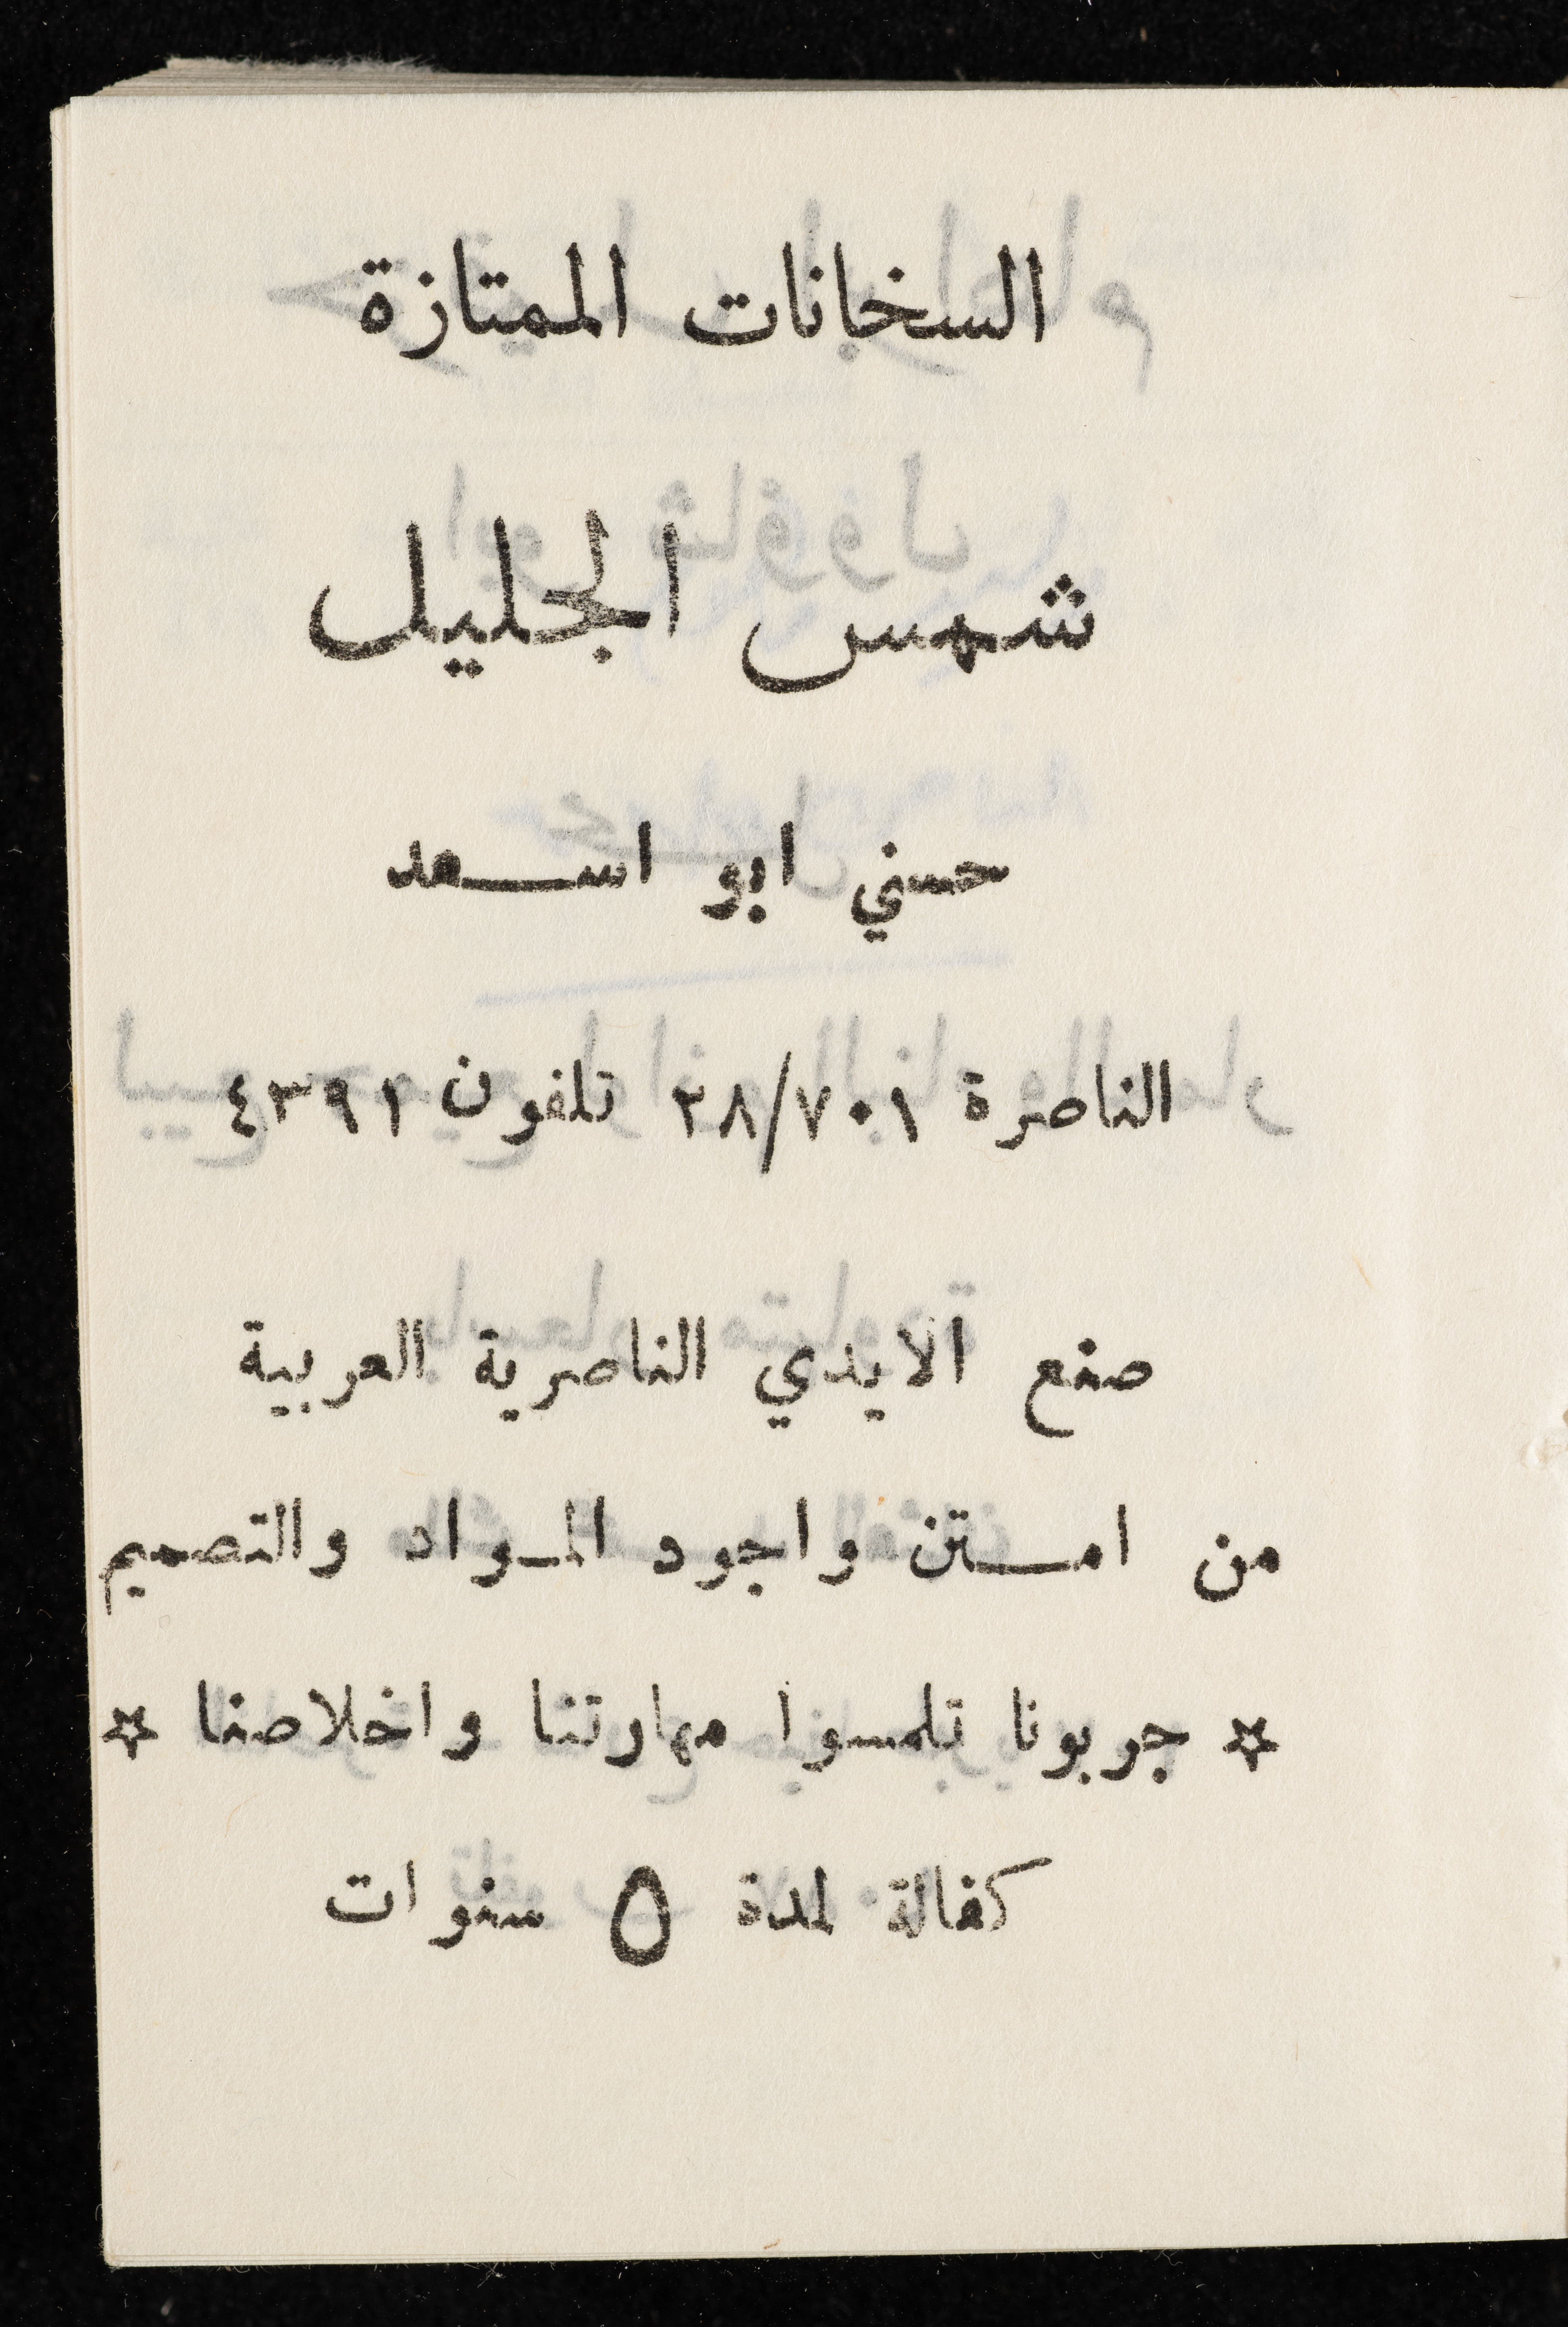 السخانات الممتازة
شمس الجليل
حسني ابو اسـعد
الناصرة ٢٨/٧٠١ تلفون ٤٣٩١
صنع الايدي الناصرية العربية
من امـتن واجود المـواد والتصميم
☆ جربونا تلمسوا مهارتنا واخلاصنا ☆
كفالة لمدة ٥ سنوات